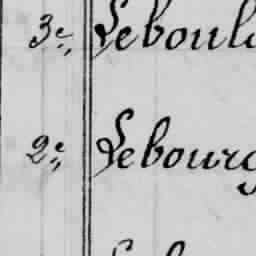 3e, Leboul
2e, Lebourg